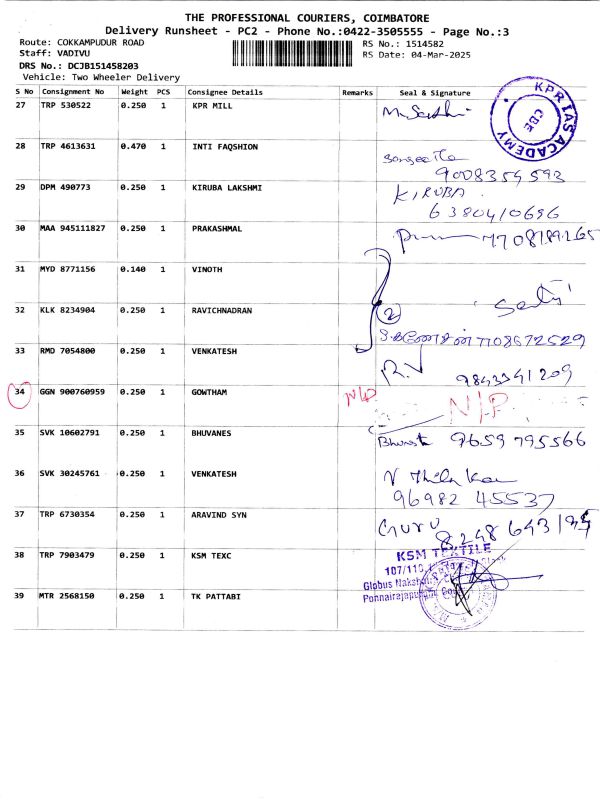 THE PROFESSIONAL COURIERS, COIMBATORE
Delivery Runsheet - PC2 - Phone No.:0422-3505555 - Page No.:3
Route: COKKAMPUDUR ROAD
Staff: VADIVU
DRS No.: DCJB151458203
Vehicle: Two Wheeler Delivery
RS No.: 1514582
RS Date: 04-Mar-2025
S No Consignment No Weight PCS Consignee Details Remarks Seal & Signature
27 TRP 530522 0.250 1 KPR MILL
KPR IAS ACADEMY
CBE
28 TRP 4613631 0.470 1 INTI FAQSHION
9008354593
29 DPM 490773 0.250 1 KIRUBA LAKSHMI KIRUBA
6380410696
30 MAA 945111827 0.250 1 PRAKASHMAL
31 MYD 8771156 0.140 1 VINOTH
32 KLK 8234904 0.250 1 RAVICHNADRAN
2
33 RMD 7054800 0.250 1 VENKATESH R.V
9843341209
34 GGN 900760959 0.250 1 GOWTHAM N/P N/P
35 SVK 10602791 0.250 1 BHUVANES 9659795566
36 SVK 30245761 0.250 1 VENKATESH
96982 45537
37 TRP 6730354 0.250 1 ARAVIND SYN GURU
38 TRP 7903479 0.250 1 KSM TEXC
KSM TEXTILE
107/110,
Globus
39 MTR 2568150 0.250 1 TK PATTABI